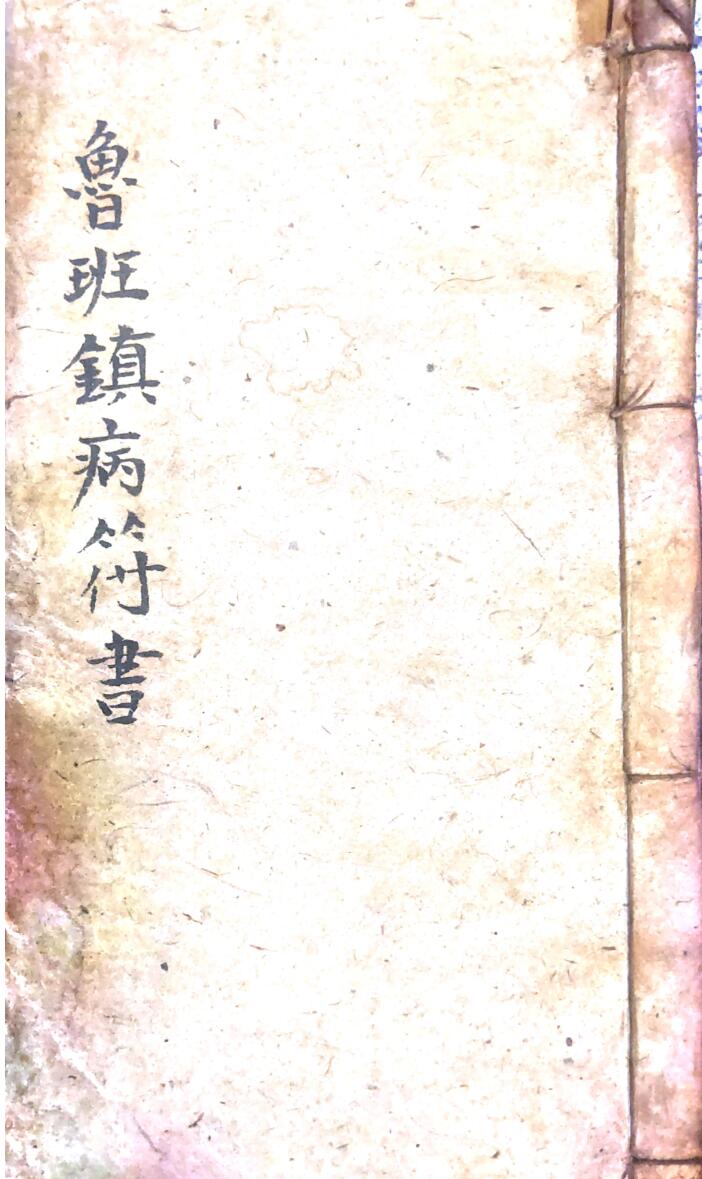 魯班鎮病符書